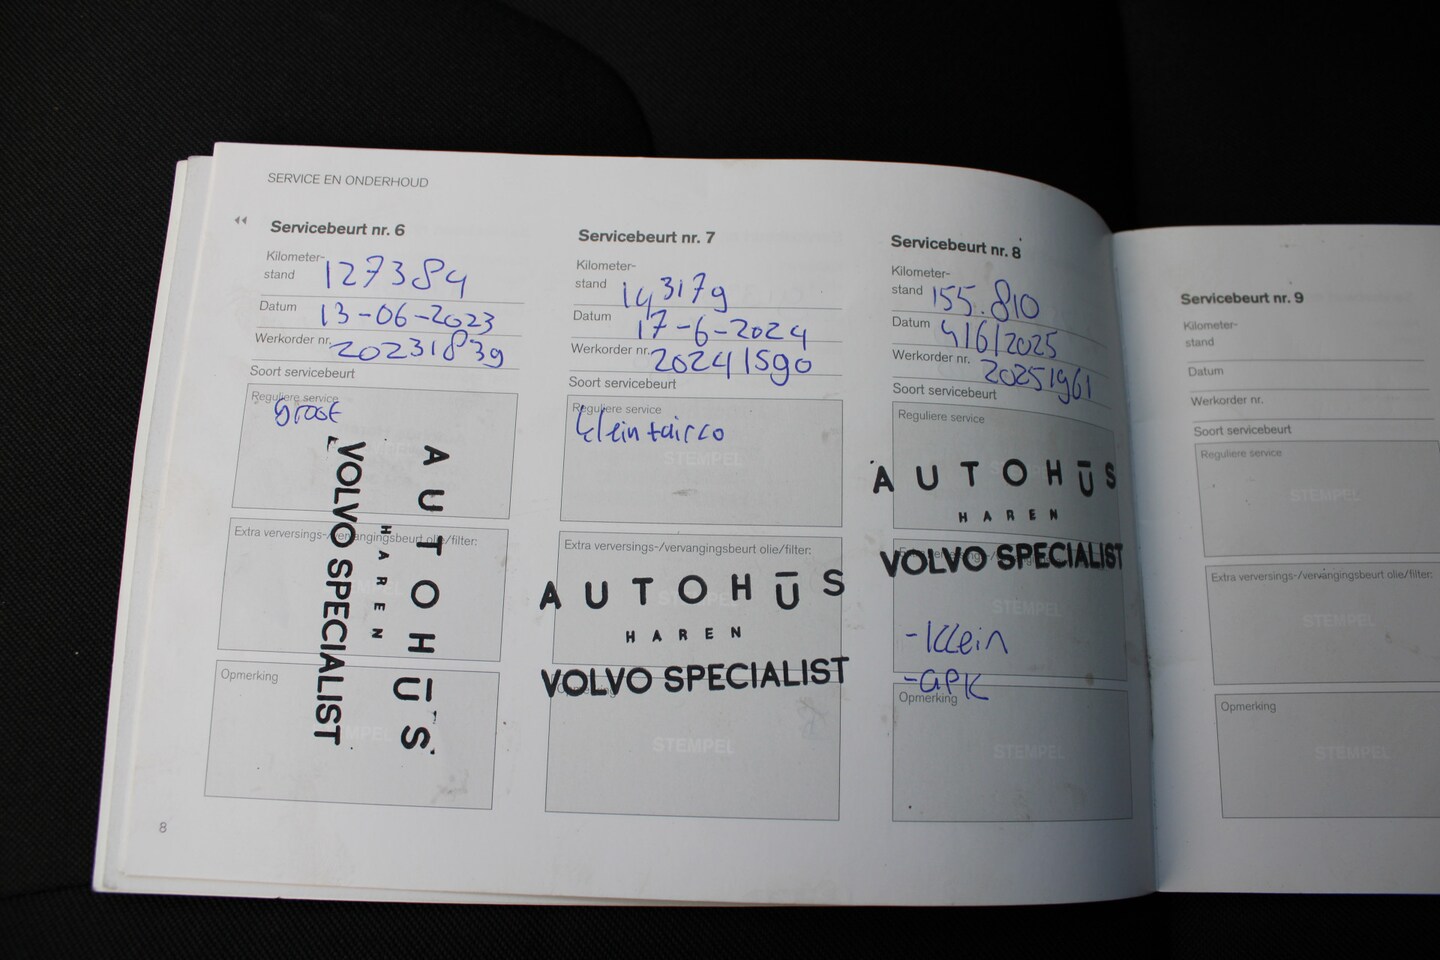 SERVICE EN ONDERHOUD
Servicebeurt nr. 6
Kilometer-
stand 127384
Datum 13-06-2023
Werkorder nr. 20231839
Soort servicebeurt
Reguliere service
groot
AUTOHŪS
HAREN
VOLVO SPECIALIST
Extra verversings-/vervangingsbeurt olie/filter:
Opmerking
8
Servicebeurt nr. 7
Kilometer-
stand 143179
Datum 17-6-2024
Werkorder nr. 20241590
Soort servicebeurt
Reguliere service
klein + airco
STEMPEL
Extra verversings-/vervangingsbeurt olie/filter:
AUTOHŪS
HAREN
VOLVO SPECIALIST
Opmerking
STEMPEL
Servicebeurt nr. 8
Kilometer-
stand 155.810
Datum 4/6/2025
Werkorder nr. 20251961
Soort servicebeurt
Reguliere service
AUTOHŪS
HAREN
VOLVO SPECIALIST
STEMPEL
-Klein
-APK
Opmerking
STEMPEL
Servicebeurt nr. 9
Kilometer-
stand
Datum
Werkorder nr.
Soort servicebeurt
Reguliere service
STEMPEL
Extra verversings-/vervangingsbeurt olie/filter:
STEMPEL
Opmerking
STEMPEL